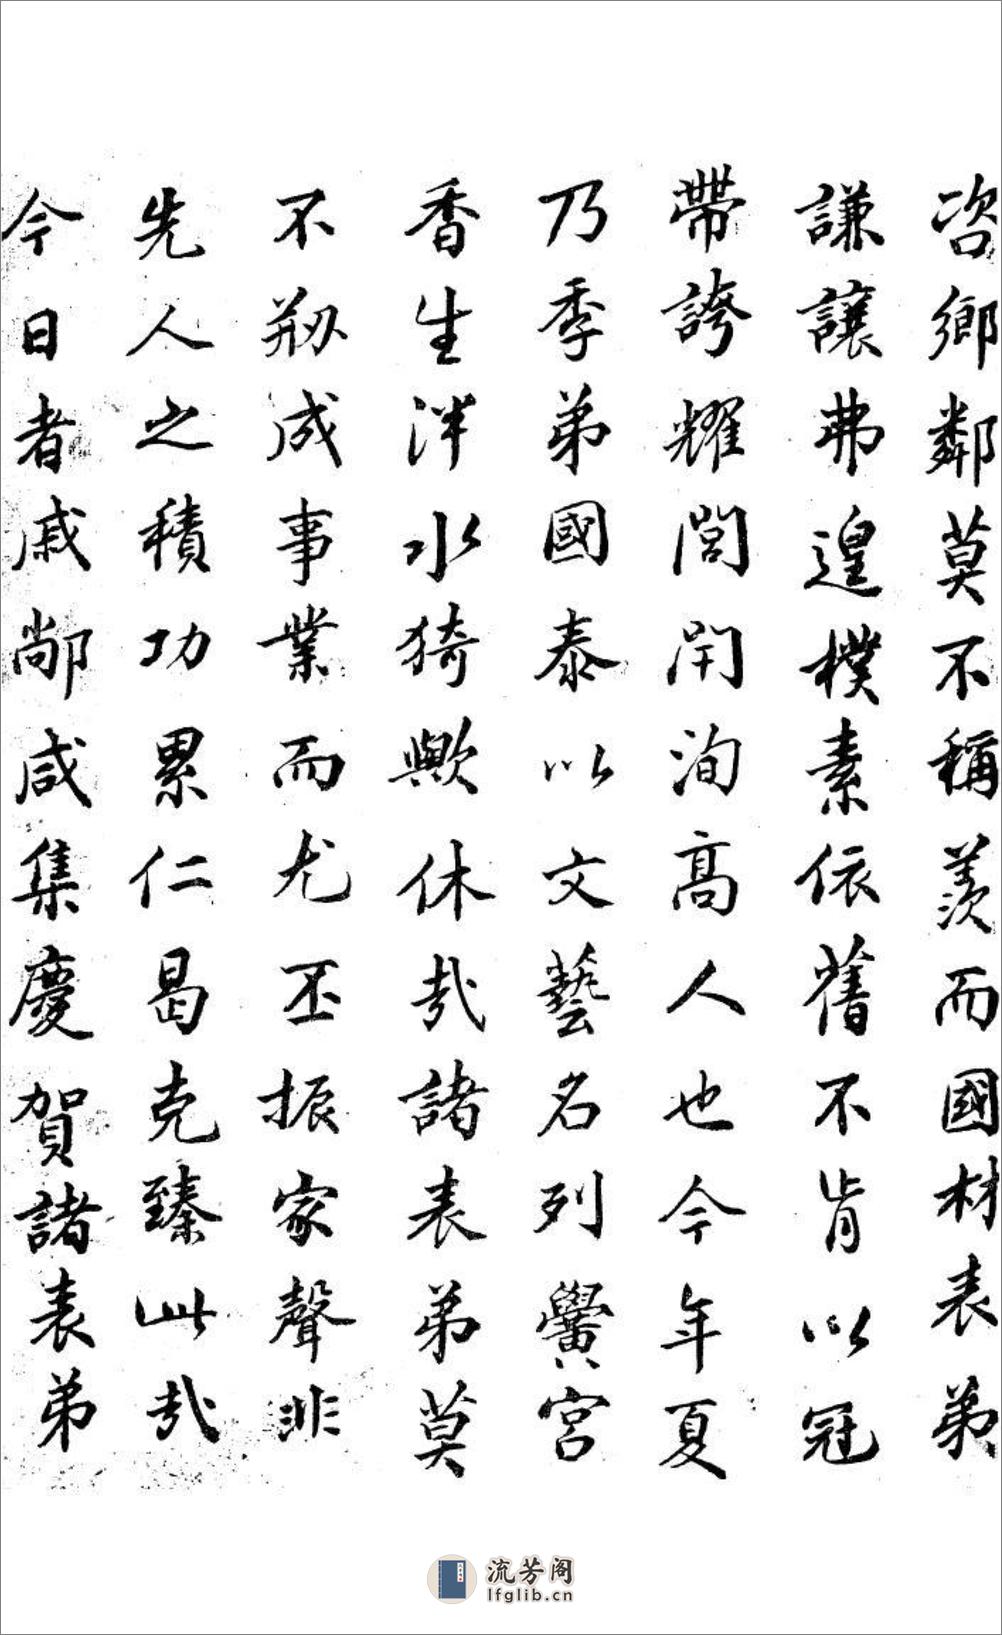 咨鄉鄰莫不稱羨而國材表弟
謙讓弗遑樸素依舊不肯以冠
帶誇耀閭閈洵高人也今年夏
乃季弟國泰以文藝名列黌宮
香生泮水猗歟休哉諸表弟莫
不剏成事業而尤丕振家聲非
先人之積功累仁曷克臻此哉
今日者戚鄰咸集慶賀諸表弟
流芳阁
lfglib.cn